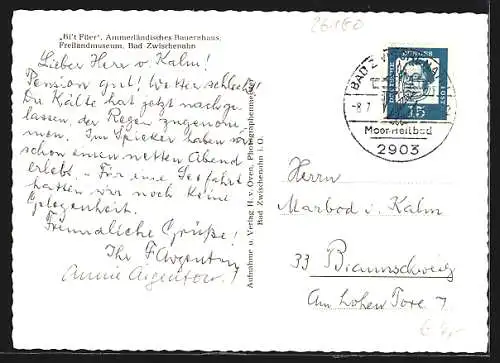 26180
„Bi't Füer", Ammerländisches Bauernhaus,
Freilandmuseum, Bad Zwischenahn
Lieber Herr v. Kalm!
Pension gut! Wetter schlecht!
Die Kälte hat jetzt nachge-
lassen, der Regen zugenom-
men. Im Spieker haben wir
schon einen netten Abend
erlebt. - Für eine Seefahrt
hatten wir noch keine
Gelegenheit.
Freundliche Grüße!
Ihr
Annie
Aufnahme u. Verlag H. v. Oven, Photographenmeister
Bad Zwischenahn i. O.
BAD ZWISCHENAHN
-8.7.
Moor-Heilbad
2903
DEUTSCHE BUNDESPOST
15
Herrn
Marbod v. Kalm
33 Braunschweig
Am Hohen Tore 7